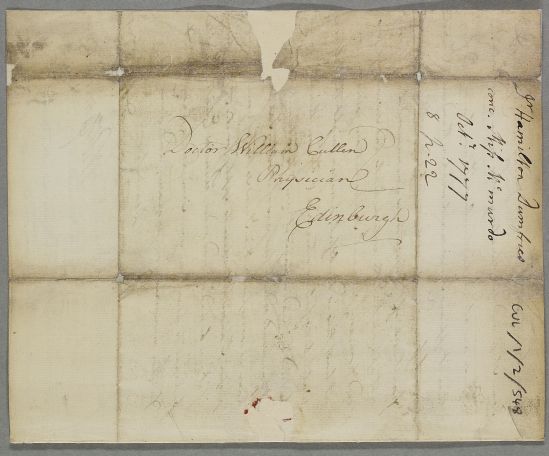 Doctor William Cullen
Physician
Edinburgh
Dr Hamilton Dumfries
conc. Miss McMurdo
Octr. 1777
CUL/1/2/548